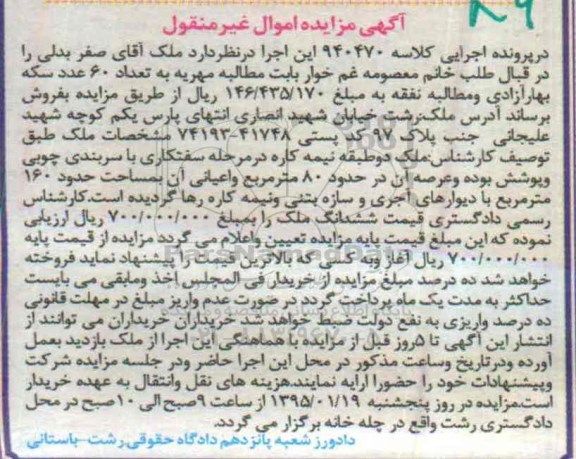 آگهی مزایده اموال غیر منقول
درپرونده اجرایی کلاسه ۹۴۰۴۷۰ این اجرا درنظردارد ملک آقای صفر بدلی را
در قبال طلب خانم معصومه غم خوار بابت مطالبه مهریه به تعداد ۶۰ عدد سکه
بهارآزادی ومطالبه نفقه به مبلغ ۱۴۶/۴۳۵/۱۷۰ ریال از طریق مزایده بفروش
برساند آدرس ملک:رشت خیابان شهید انصاری انتهای پارس یکم کوچه شهید
علیجانی جنب پلاک ۹۷ کد پستی ۴۱۷۴۸-۷۴۱۹۳ مشخصات ملک طبق
توصیف کارشناس:ملک دوطبقه نیمه کاره درمرحله سفتکاری با سربندی چوبی
وپوشش بوده وعرصه آن در حدود ۸۰ مترمربع واعیانی آن بمساحت حدود ۱۶۰
مترمربع با دیوارهای آجری و سازه بتنی ونیمه کاره رها گردیده است.کارشناس
رسمی دادگستری قیمت ششدانگ ملک را بمبلغ ۷۰۰/۰۰۰/۰۰۰ ریال ارزیابی
نموده که این مبلغ قیمت پایه مزایده تعیین واعلام می گردد مزایده از قیمت پایه
۷۰۰/۰۰۰/۰۰۰ ریال آغاز وبه کسی که بالاترین قیمت را پیشنهاد نماید فروخته
خواهد شد ده درصد مبلغ مزایده از خریدار فی المجلس اخذ ومابقی می بایست
حداکثر به مدت یک ماه پرداخت گردد در صورت عدم واریز مبلغ در مهلت قانونی
ده درصد واریزی به نفع دولت ضبط خواهد شد خریداران خریداران می توانند از
انتشار این آگهی تا ۵روز قبل از مزایده با هماهنگی این اجرا از ملک بازدید بعمل
آورده ودرتاریخ وساعت مذکور در محل این اجرا حاضر ودر جلسه مزایده شرکت
وپیشنهادات خود را حضورا ارایه نمایند.هزینه های نقل وانتقال به عهده خریدار
است.مزایده در روز پنجشنبه ۱۳۹۵/۰۱/۱۹ از ساعت ۹صبح الی ۱۰صبح در محل
دادگستری رشت واقع در چله خانه برگزار می گردد.
دادورز شعبه پانزدهم دادگاه حقوقی رشت-باستانی